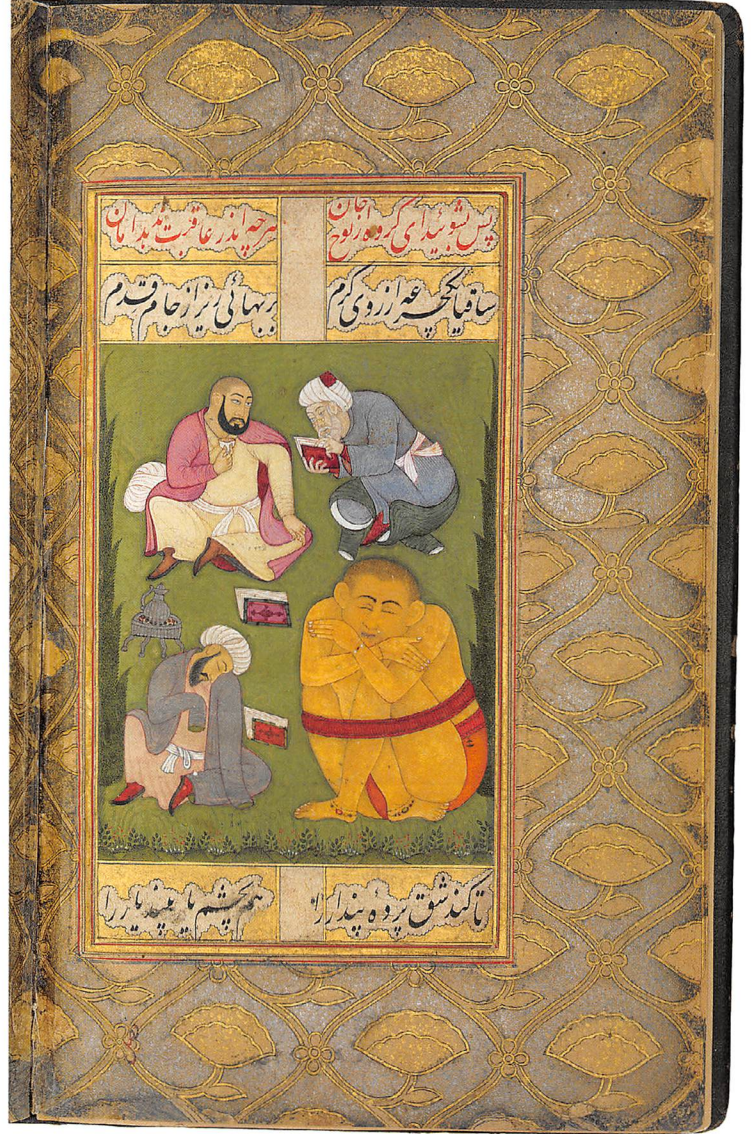 پس بشوئید ای گروه از لوح جان هرچه اندر عاقبت امان
ساقیا یکجرعه از روی کرم بر بهائی ریز از جام قدم
تا کند شق پردهٔ پندار را هم بچشم یار بیند یار را